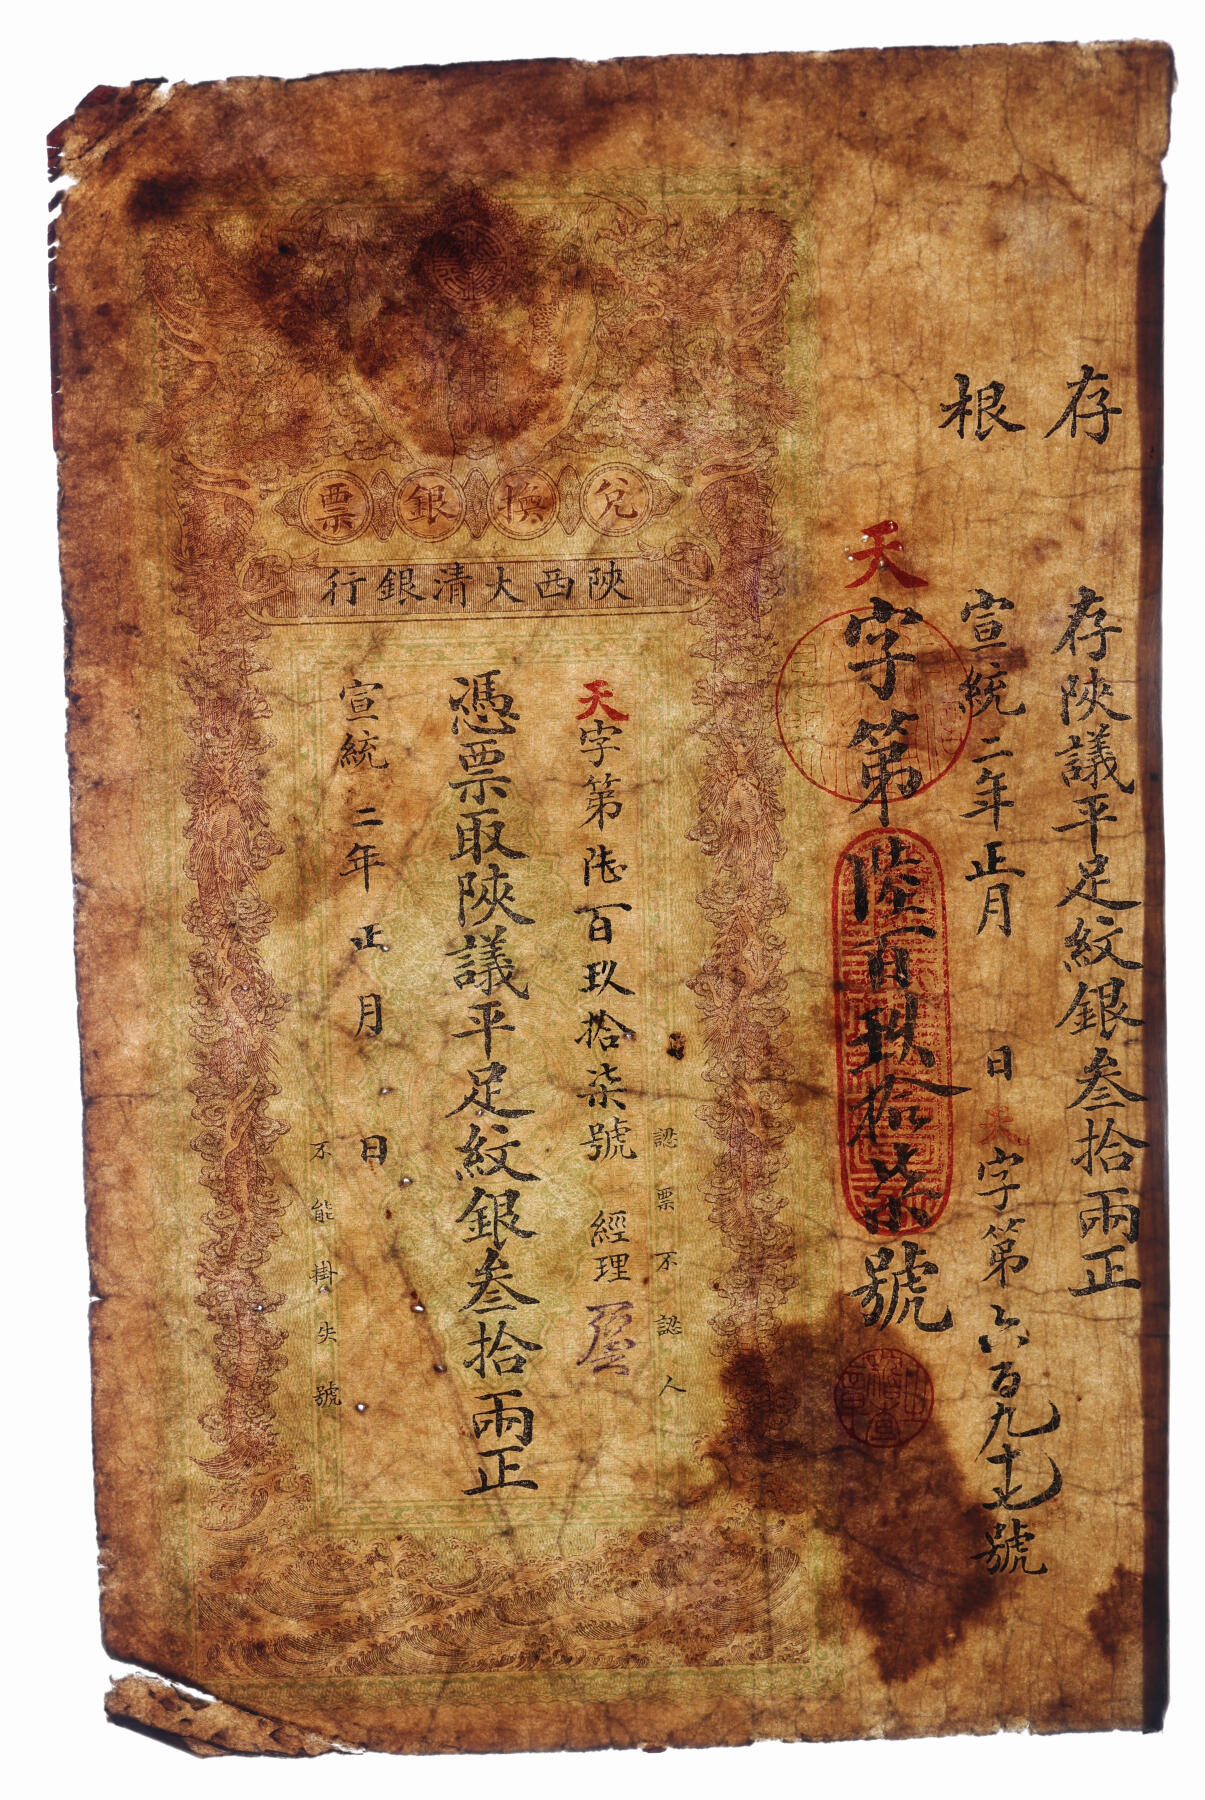 存根
存陝議平足紋銀叁拾兩正
宣統二年正月 日 天字第六百九十七號
天字第陸百玖拾柒號
兌換銀票
陝西大清銀行
認票不認人
天字第陸百玖拾柒號 經理
憑票取陝議平足紋銀叁拾兩正
宣統二年正月 日
不能掛失號